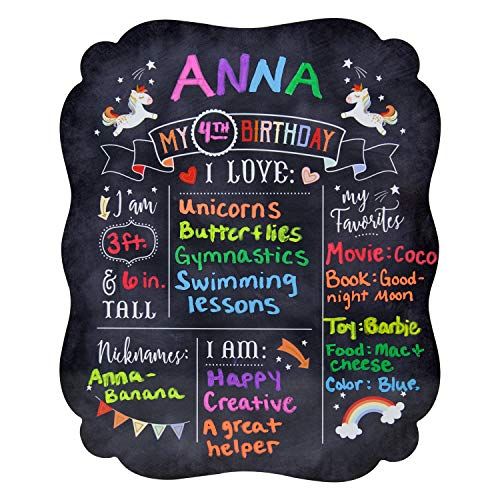 ANNA
MY 4TH BIRTHDAY
I LOVE:
Unicorns
Butterflies
Gymnastics
Swimming
lessons
I am
3ft.
& 6 in.
TALL
my
Favorites
Movie: Coco
Book: Good-
night Moon
Toy: Barbie
Food: Mac +
cheese
Color: Blue
Nicknames:
Anna-
Banana
I AM:
Happy
Creative
A great
helper